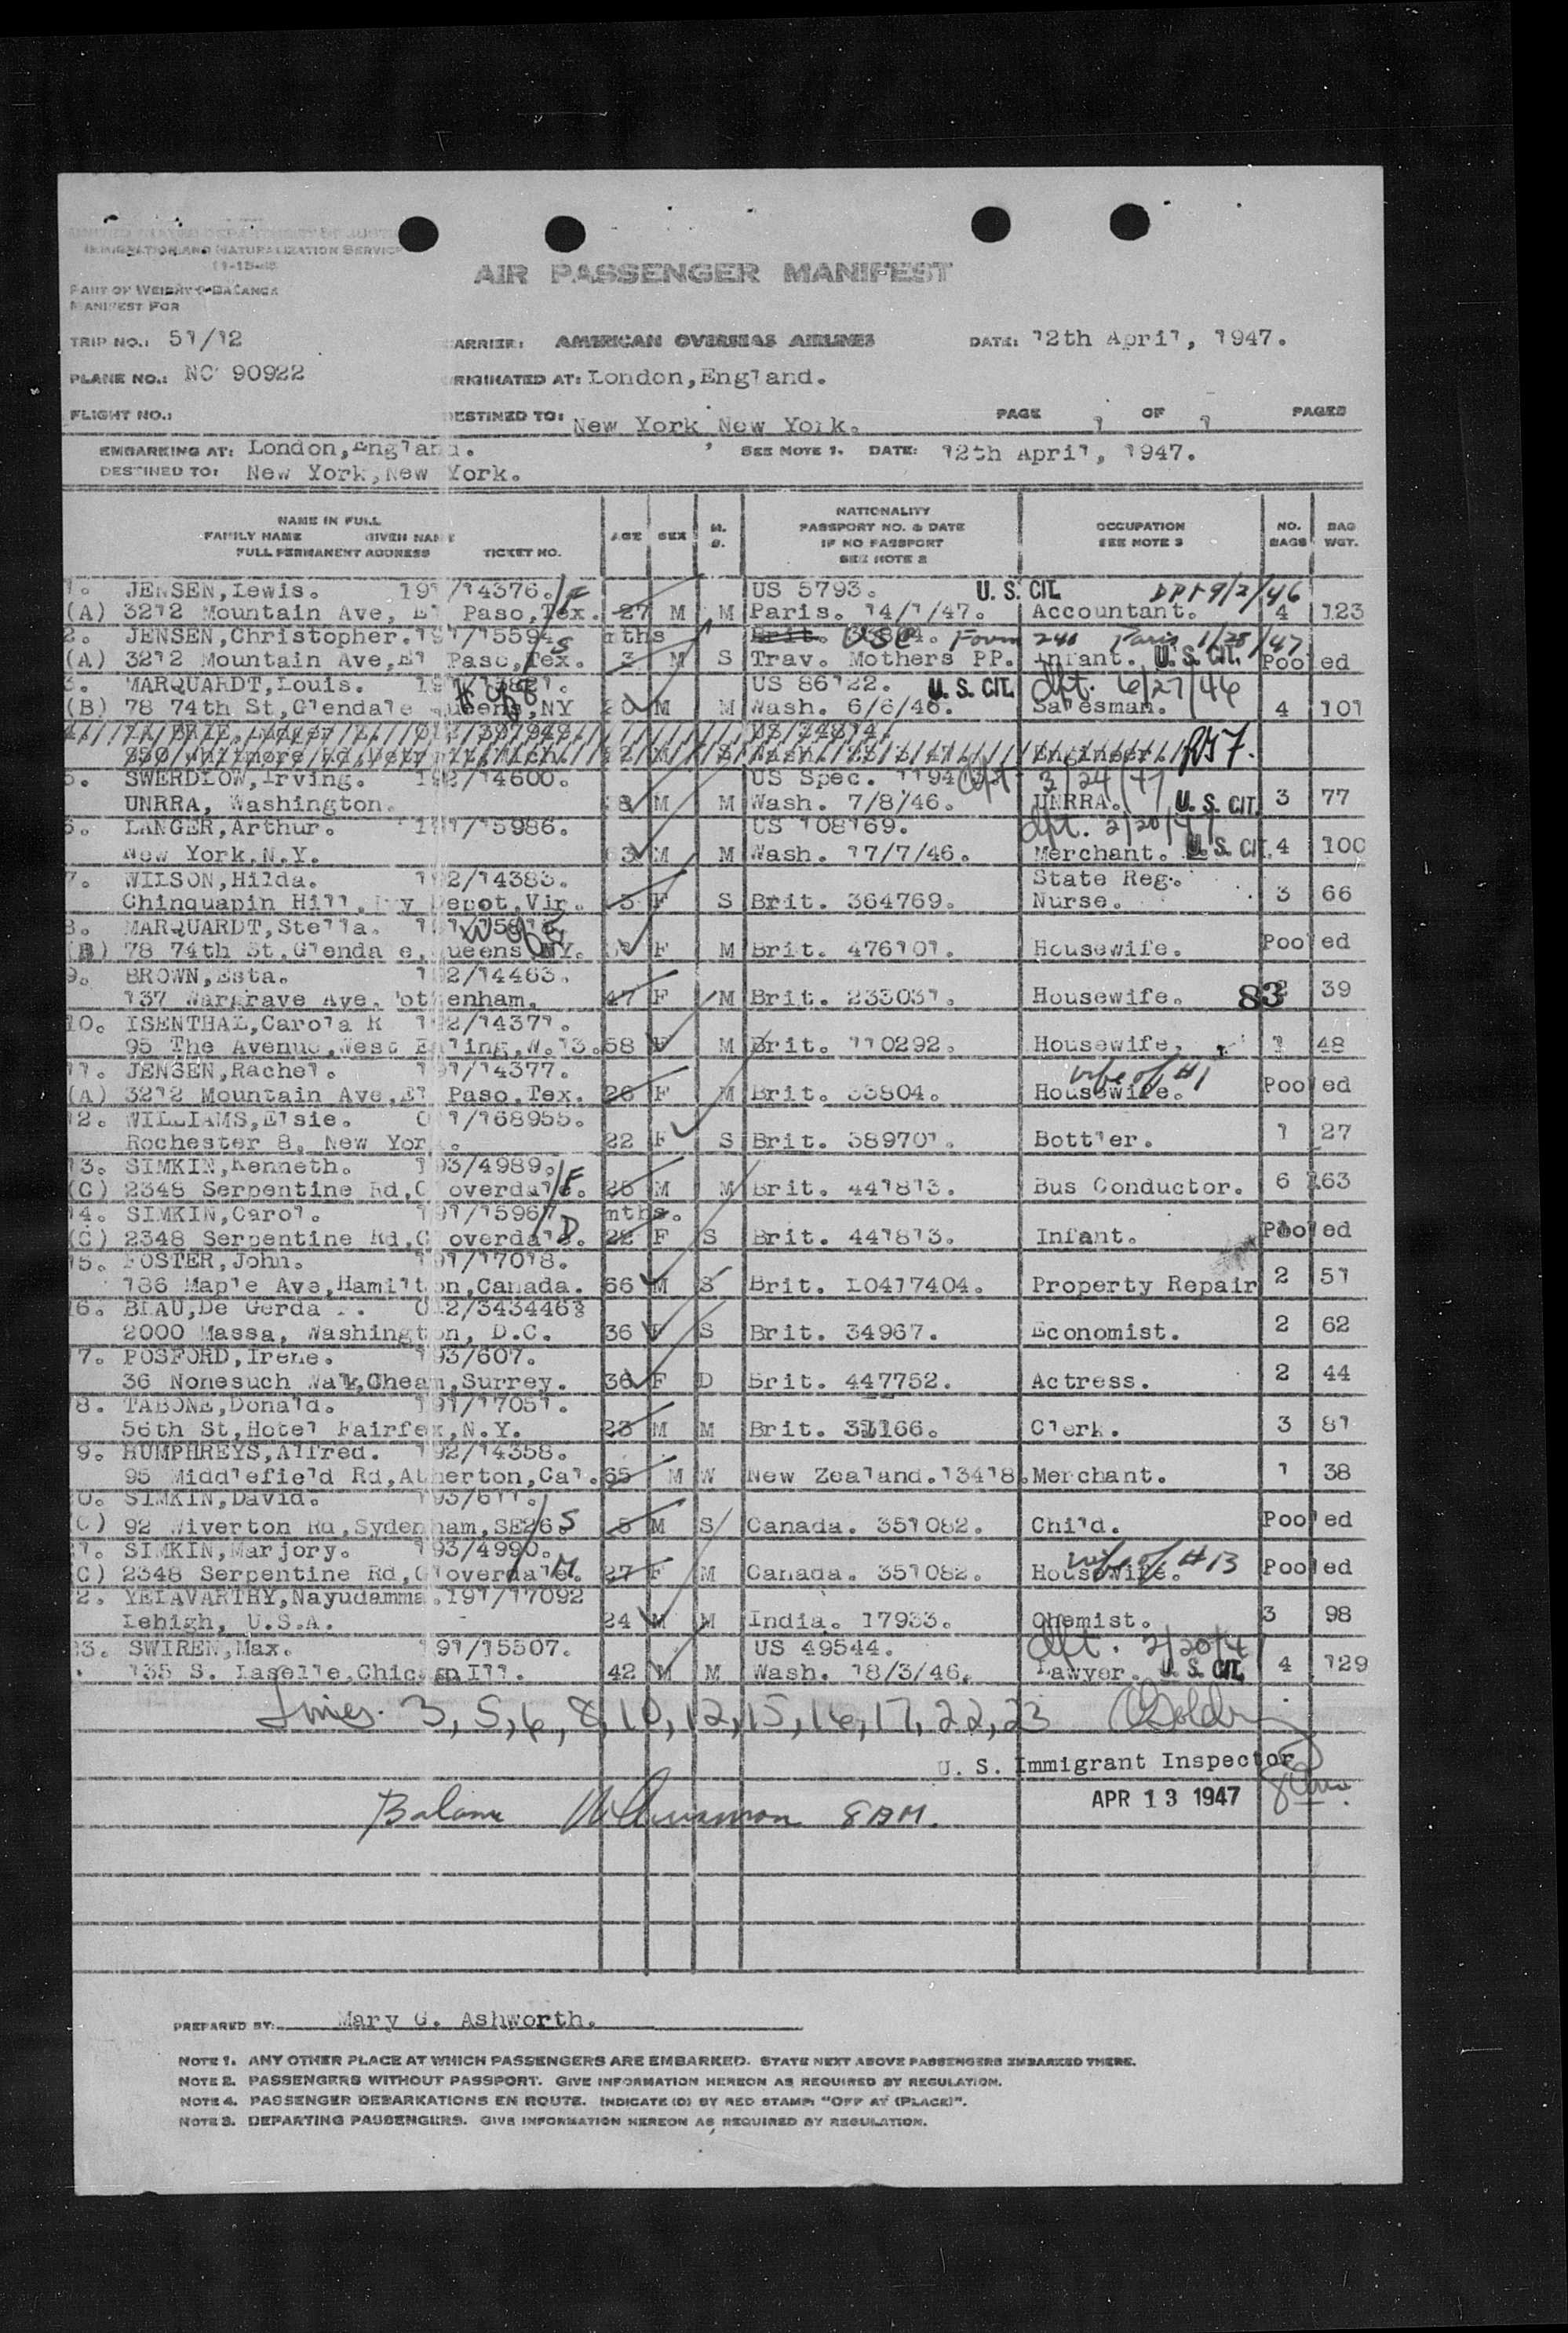 UNITED STATES DEPARTMENT OF JUSTICE
IMMIGRATION AND NATURALIZATION SERVICE
11-15-45
PART OF WEIGHT & BALANCE
MANIFEST FOR
AIR PASSENGER MANIFEST
TRIP NO.: 51/12 ARRIER: AMERICAN OVERSEAS AIRLINES DATE: 12th April, 1947.
PLANE NO.: NC 90922 RIGINATED AT: London,England.
FLIGHT NO.: ESTINED TO: New York New York. PAGE 1 OF 1 PAGES
EMBARKING AT: London,England. SEE NOTE 1. DATE: 12th April, 1947.
DESTINED TO: New York,New York.
NAME IN FULL
FAMILY NAME GIVEN NAME
FULL PERMANENT ADDRESS TICKET NO. AGE SEX M. S. NATIONALITY PASSPORT NO. & DATE IF NO PASSPORT SEE NOTE 2 OCCUPATION SEE NOTE 3 NO. BAGS BAG WGT.
1. JENSEN,Lewis. 191/14376. F US 5793. U. S. CIT. DPT 9/2/46
(A) 3212 Mountain Ave, El Paso,Tex. 27 M M Paris. 14/1/47. Accountant. 4 123
2. JENSEN,Christopher.191/15594. S mths Brit. USC Form 240 Paris 1/28/47
(A) 3212 Mountain Ave,El Paso,Tex. 3 M S Trav. Mothers PP. Infant. U. S. CIT. Pooled
3. MARQUARDT,Louis. US 86122. U. S. CIT. dpt. 6/27/46
(B) 78 74th St,Glendale Queens,NY M M Wash. 6/6/46. Salesman. 4 101
5. SWERDLOW,Irving. 192/14600. US Spec. 1194 dpt 3/24/47
UNRRA, Washington. M M Wash. 7/8/46. UNRRA. U. S. CIT. 3 77
6. LANGER,Arthur. 191/15986. US 108169. dpt. 2/20/47
New York,N.Y. M M Wash. 17/7/46. Merchant. U. S. CIT. 4 100
7. WILSON,Hilda. 192/14383. State Reg.
Chinquapin Hill,Ivy Depot,Vir. F S Brit. 364769. Nurse. 3 66
8. MARQUARDT,Stella. wife
(B) 78 74th St,Glendale,Queens NY. F M Brit. 476101. Housewife. Pooled
9. BROWN,Esta. 192/14463.
137 Wargrave Ave, Tottenham. 47 F M Brit. 233031. Housewife. 83 2 39
10. ISENTHAL,Carola R 192/14371.
95 The Avenue,West Ealing,W.13. 58 F M Brit. 110292. Housewife. 1 48
11. JENSEN,Rachel. 191/14377. wife of #1
(A) 3212 Mountain Ave,El Paso,Tex. 26 F M Brit. 33804. Housewife. Pooled
12. WILLIAMS,Elsie. 011/168955.
Rochester 8, New York. 22 F S Brit. 389701. Bottler. 1 27
13. SIMKIN,Kenneth. 193/4989. F
(C) 2348 Serpentine Rd,Cloverdale. 26 M M Brit. 441813. Bus Conductor. 6 263
14. SIMKIN,Carol. 191/15967 mths.
(C) 2348 Serpentine Rd,Cloverdale. D 22 F S Brit. 441813. Infant. Pooled
15. FOSTER,John. 191/17018.
186 Maple Ave,Hamilton,Canada. 66 M S Brit. L0417404. Property Repair 2 51
16. BLAU,De Gerda 012/343446
2000 Massa, Washington, D.C. 36 F S Brit. 34967. Economist. 2 62
17. POSFORD,Irene. 193/607.
36 Nonesuch Walk,Cheam,Surrey. 36 F D Brit. 447752. Actress. 2 44
18. TABONE,Donald. 191/17051.
56th St,Hotel Fairfex,N.Y. 23 M M Brit. 31166. Clerk. 3 81
19. HUMPHREYS,Alfred. 192/14358.
95 Middlefield Rd,Atherton,Cal. 65 M W New Zealand.13418. Merchant. 1 38
20. SIMKIN,David. 193/611.
(C) 92 Wiverton Rd,Sydenham,SE26. S 5 M S Canada. 351082. Child. Pooled
21. SIMKIN,Marjory. 193/4990. wife of #13
(C) 2348 Serpentine Rd,Cloverdale. M 27 F M Canada. 351082. Housewife. Pooled
22. YELAVARTHY,Nayudamma.191/17092
Lehigh, U.S.A. 24 M M India. 17933. Chemist. 3 98
23. SWIREN,Max. 191/15507. US 49544. dpt. 2/20/47
135 S. Laselle,Chicago Ill. 42 M M Wash. 18/3/46. Lawyer. U. S. CIT. 4 129
Lines 3, 5, 6, 8, 10, 12, 15, 16, 17, 22, 23
U. S. Immigrant Inspector
APR 13 1947
Balance 8 AM.
PREPARED BY: Mary G. Ashworth.
NOTE 1. ANY OTHER PLACE AT WHICH PASSENGERS ARE EMBARKED. STATE NEXT ABOVE PASSENGERS EMBARKED THERE.
NOTE 2. PASSENGERS WITHOUT PASSPORT. GIVE INFORMATION HEREON AS REQUIRED BY REGULATION.
NOTE 4. PASSENGER DEBARKATIONS EN ROUTE. INDICATE (D) BY RED STAMP: "OFF AT (PLACE)".
NOTE 3. DEPARTING PASSENGERS. GIVE INFORMATION HEREON AS REQUIRED BY REGULATION.